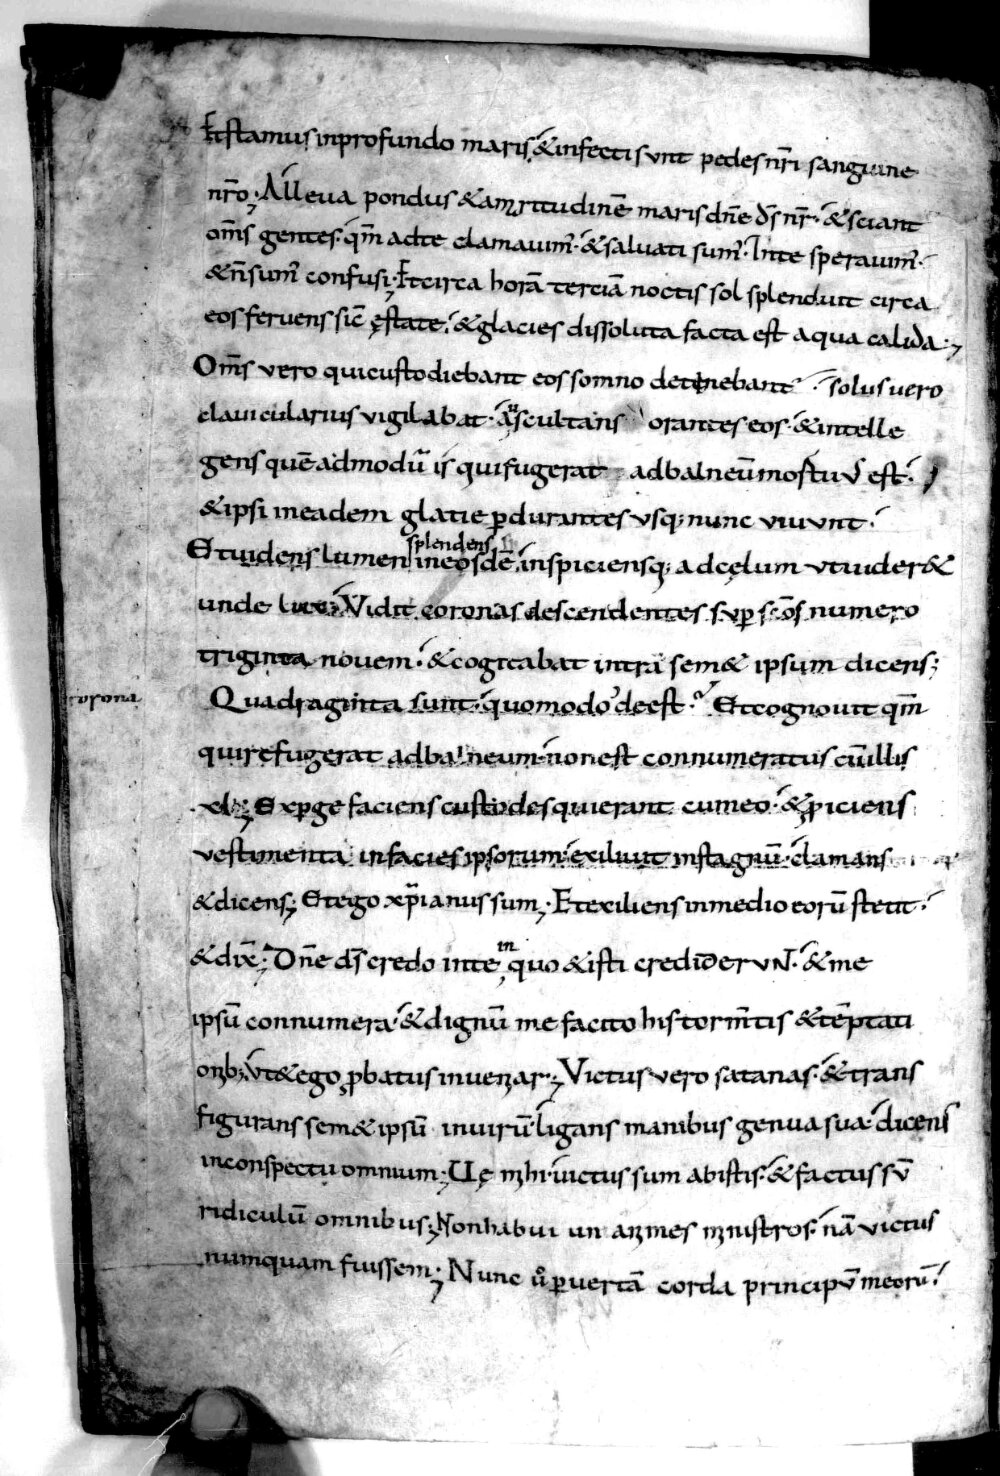 Et stamus in profundo maris. & infecti sunt pedes nr̄i sanguine
nr̄o; Alleva pondus & amaritudinē maris dn̄e ds̄ nr̄. & sciant
om̄s gentes. qm̄ ad te clamavim'. & salvati sum'. In te speravim'.
& n̄ sum' confusi; Et circa horā terciā noctis sol splenduit circa
eos fervens sic̄ ęstate. & glacies dissoluta facta est aqua calida;
Om̄s vero qui custodiebant eos somno detinebant' . solus vero
clavicularius vigilabat. auscultans orantes eos. & intelle
gens quēadmodū is qui fugerat ad balneū mostuus est.
& ipsi in eadem glatie ꝑdurantes usq; nunc vivunt.
Et videns lumen splendens in eosdē. inspiciensq; ad cęlum ut vider&
unde lux; Vidit coronas descendentes suꝑ sc̄os numero
triginta novem. & cogitabat intra sem& ipsum dicens;
corona
Quadraginta sunt. quomodo deest. Et cognovit qm̄
qui refugerat ad balneum. non est connumeratus cū illis
xl; Exꝑgefaciens custodes qui erant cum eo. & ꝓiciens
vestimenta in facies ipsorum. exiluit in stagnū. clamans
& dicens; Et ego xp̄ianus sum; Et exiliens in medio eorū stetit.
& dix̄; Dn̄e ds̄ credo in te in quo & isti credideruN. & me
ipsū connumera. & dignū me facito his torm̄tis & tēptati
onib; ut & ego ꝓbatus inveniar; Victus vero satanas. & trans
figurans sem& ipsū in virū. ligans manibus genua sua. dicens
in conspectu omnium; Uę mihi. victus sum ab istis. & factus sū
ridiculū omnibus; Non habui unanimes ministros. nā victus
numquam fuissem; Nunc v̊ ꝑvertā corda principū meorū.